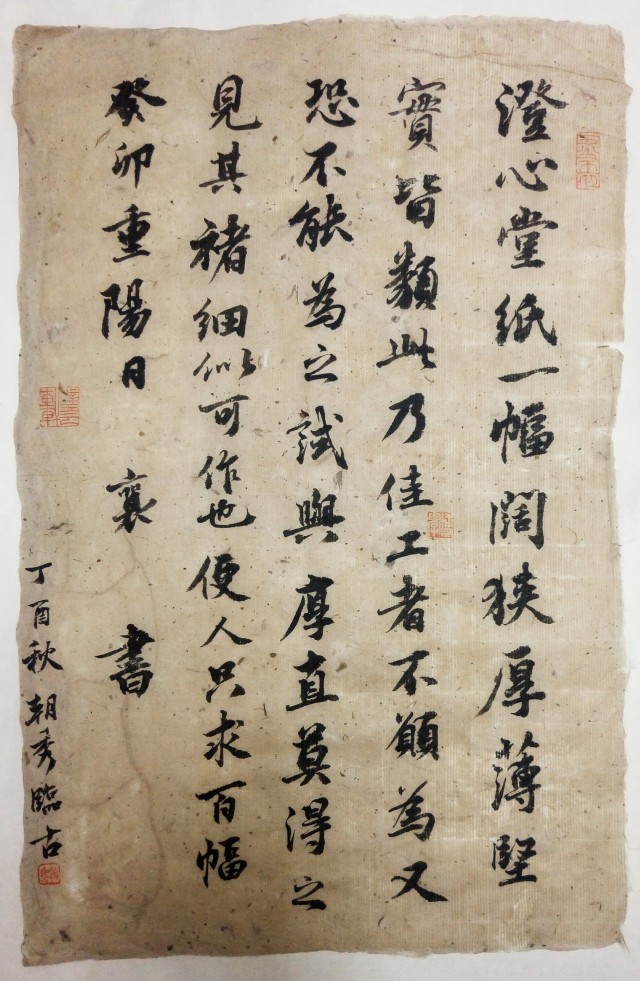 澄心堂紙一幅闊狹厚薄堅
實皆類此乃佳工者不願為又
恐不能為之試與厚直莫得之
見其楮細似可作也便人只求百幅
癸卯重陽日 襄 書
丁酉秋朝秀臨古